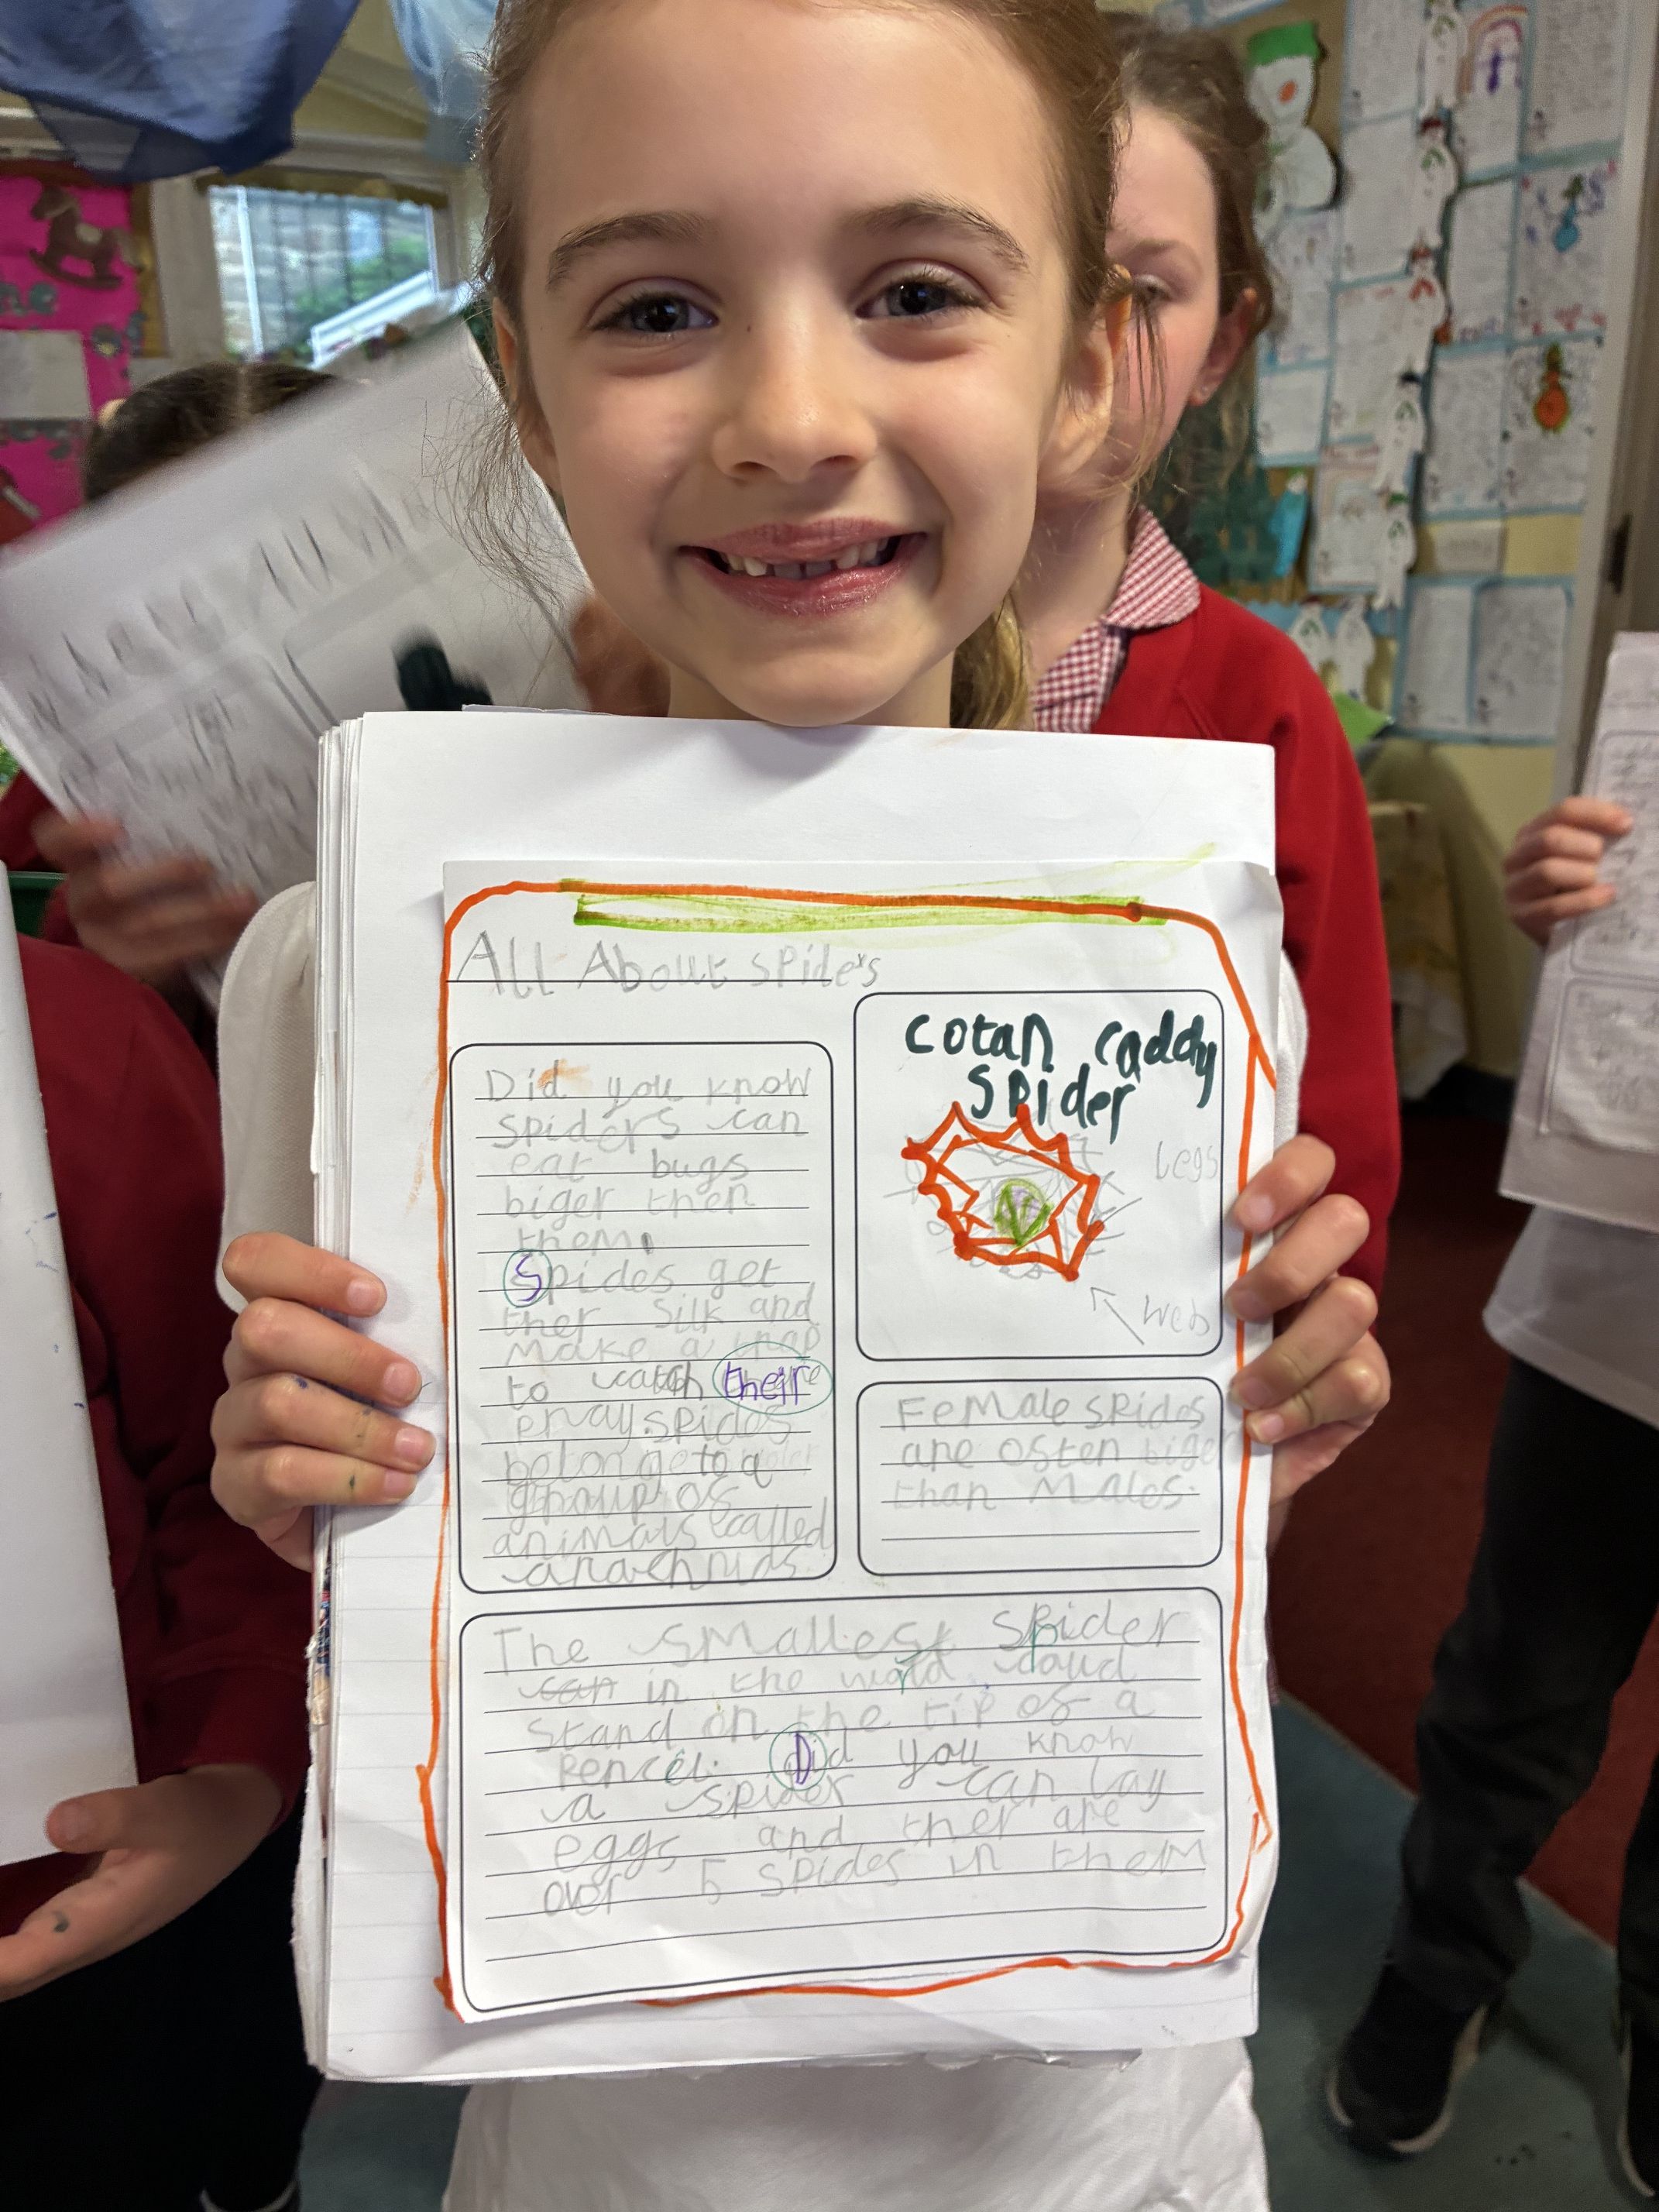 All About spiders
Did you know
spiders can
eat bugs
biger then
them.
Spides get
ther silk and
make a trap
to catch their
pray. spides
belong to a
group of
animals called
arachnids.
cotan caddy
spider
legs
web
Female spides
are often biger
than males.
The smallest spider
can in the world coud
stand on the tip of a
pencel. Did you know
a spider can lay
eggs and ther are
over 5 spides in them